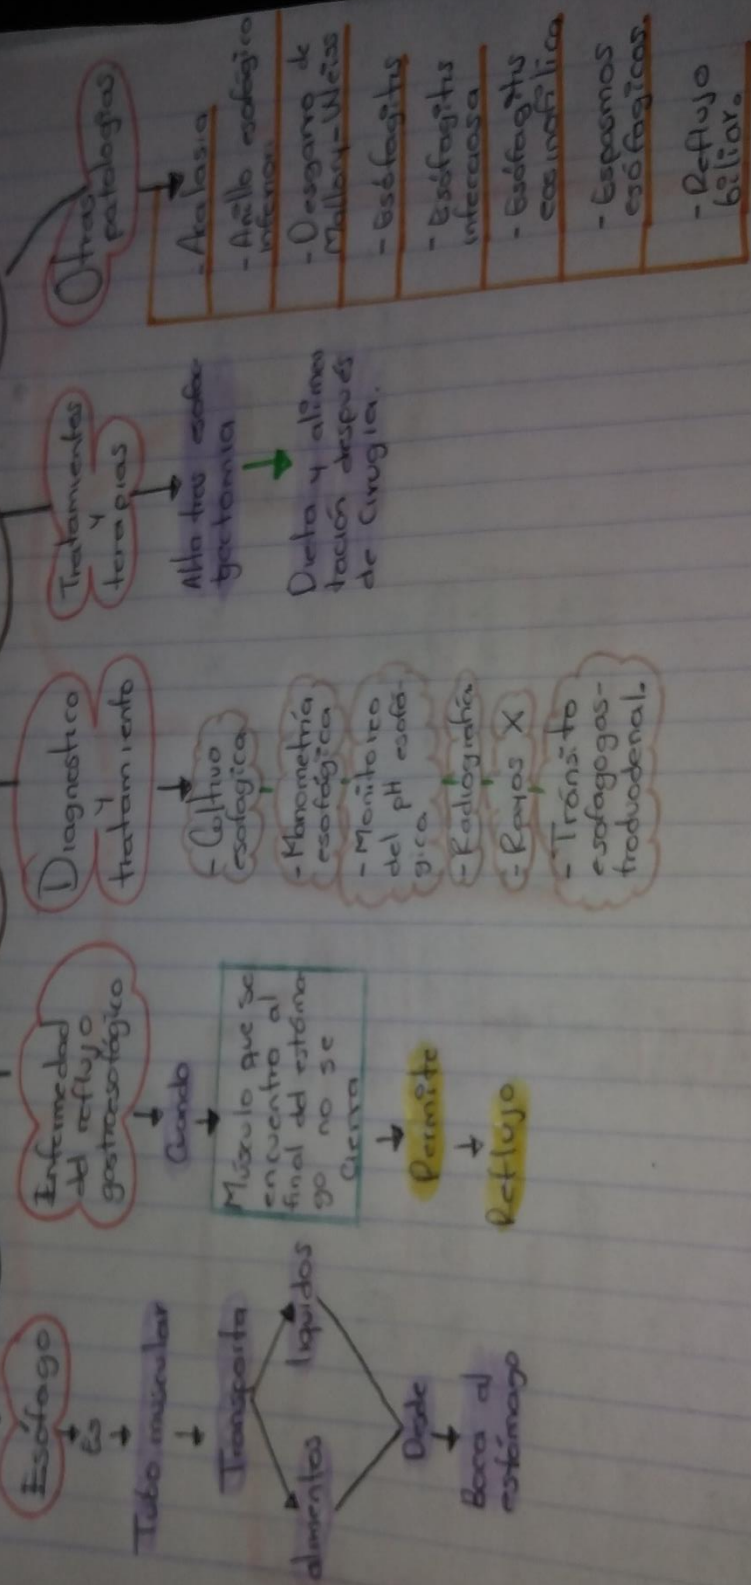 Esófago
Es
Tubo muscular
Transporta
alimentos
líquidos
Desde
Boca al
estómago
Enfermedad
del reflujo
gastroesofágico
Cuando
Músculo que se
encuentra al
final del estóma
go no se
cierra
Permite
Reflujo
Diagnostico
y
tratamiento
- Cultivo
esofagica
- Manometría
esofágica
- Monitoreo
del pH esofá-
gica
- Radiografía
- Rayos X
- Tránsito
esofagogas-
troduodenal.
Tratamientos
y
terapias
Alta tras esofa-
gectomia
Dieta y alimen
tación después
de Cirugía.
Otras
patologías
- Acalasia
- Anillo esofágico
inferior
- Desgarro de
Mallory-Weiss
- Esófagitis
- Esófagitis
infecciosa
- Esófagitis
eosinofílica
- Espasmos
esófagicos.
- Reflujo
biliar.